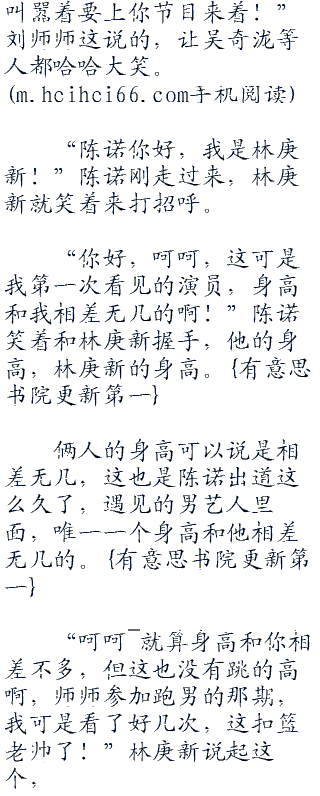 叫嚣着要上你节目来着！”
刘师师这说的，让吴奇泷等
人都哈哈大笑。
(m.hcihci66.com手机阅读)
“陈诺你好，我是林庚
新！”陈诺刚走过来，林庚
新就笑着来打招呼。
“你好，呵呵，这可是
我第一次看见的演员，身高
和我相差无几的啊！”陈诺
笑着和林庚新握手，他的身
高，林庚新的身高。{有意思
书院更新第一}
俩人的身高可以说是相
差无几，这也是陈诺出道这
么久了，遇见的男艺人里
面，唯一一个身高和他相差
无几的。{有意思书院更新第
一}
“呵呵~就算身高和你相
差不多，但这也没有跳的高
啊，师师参加跑男的那期，
我可是看了好几次，这扣篮
老帅了！”林庚新说起这
个，